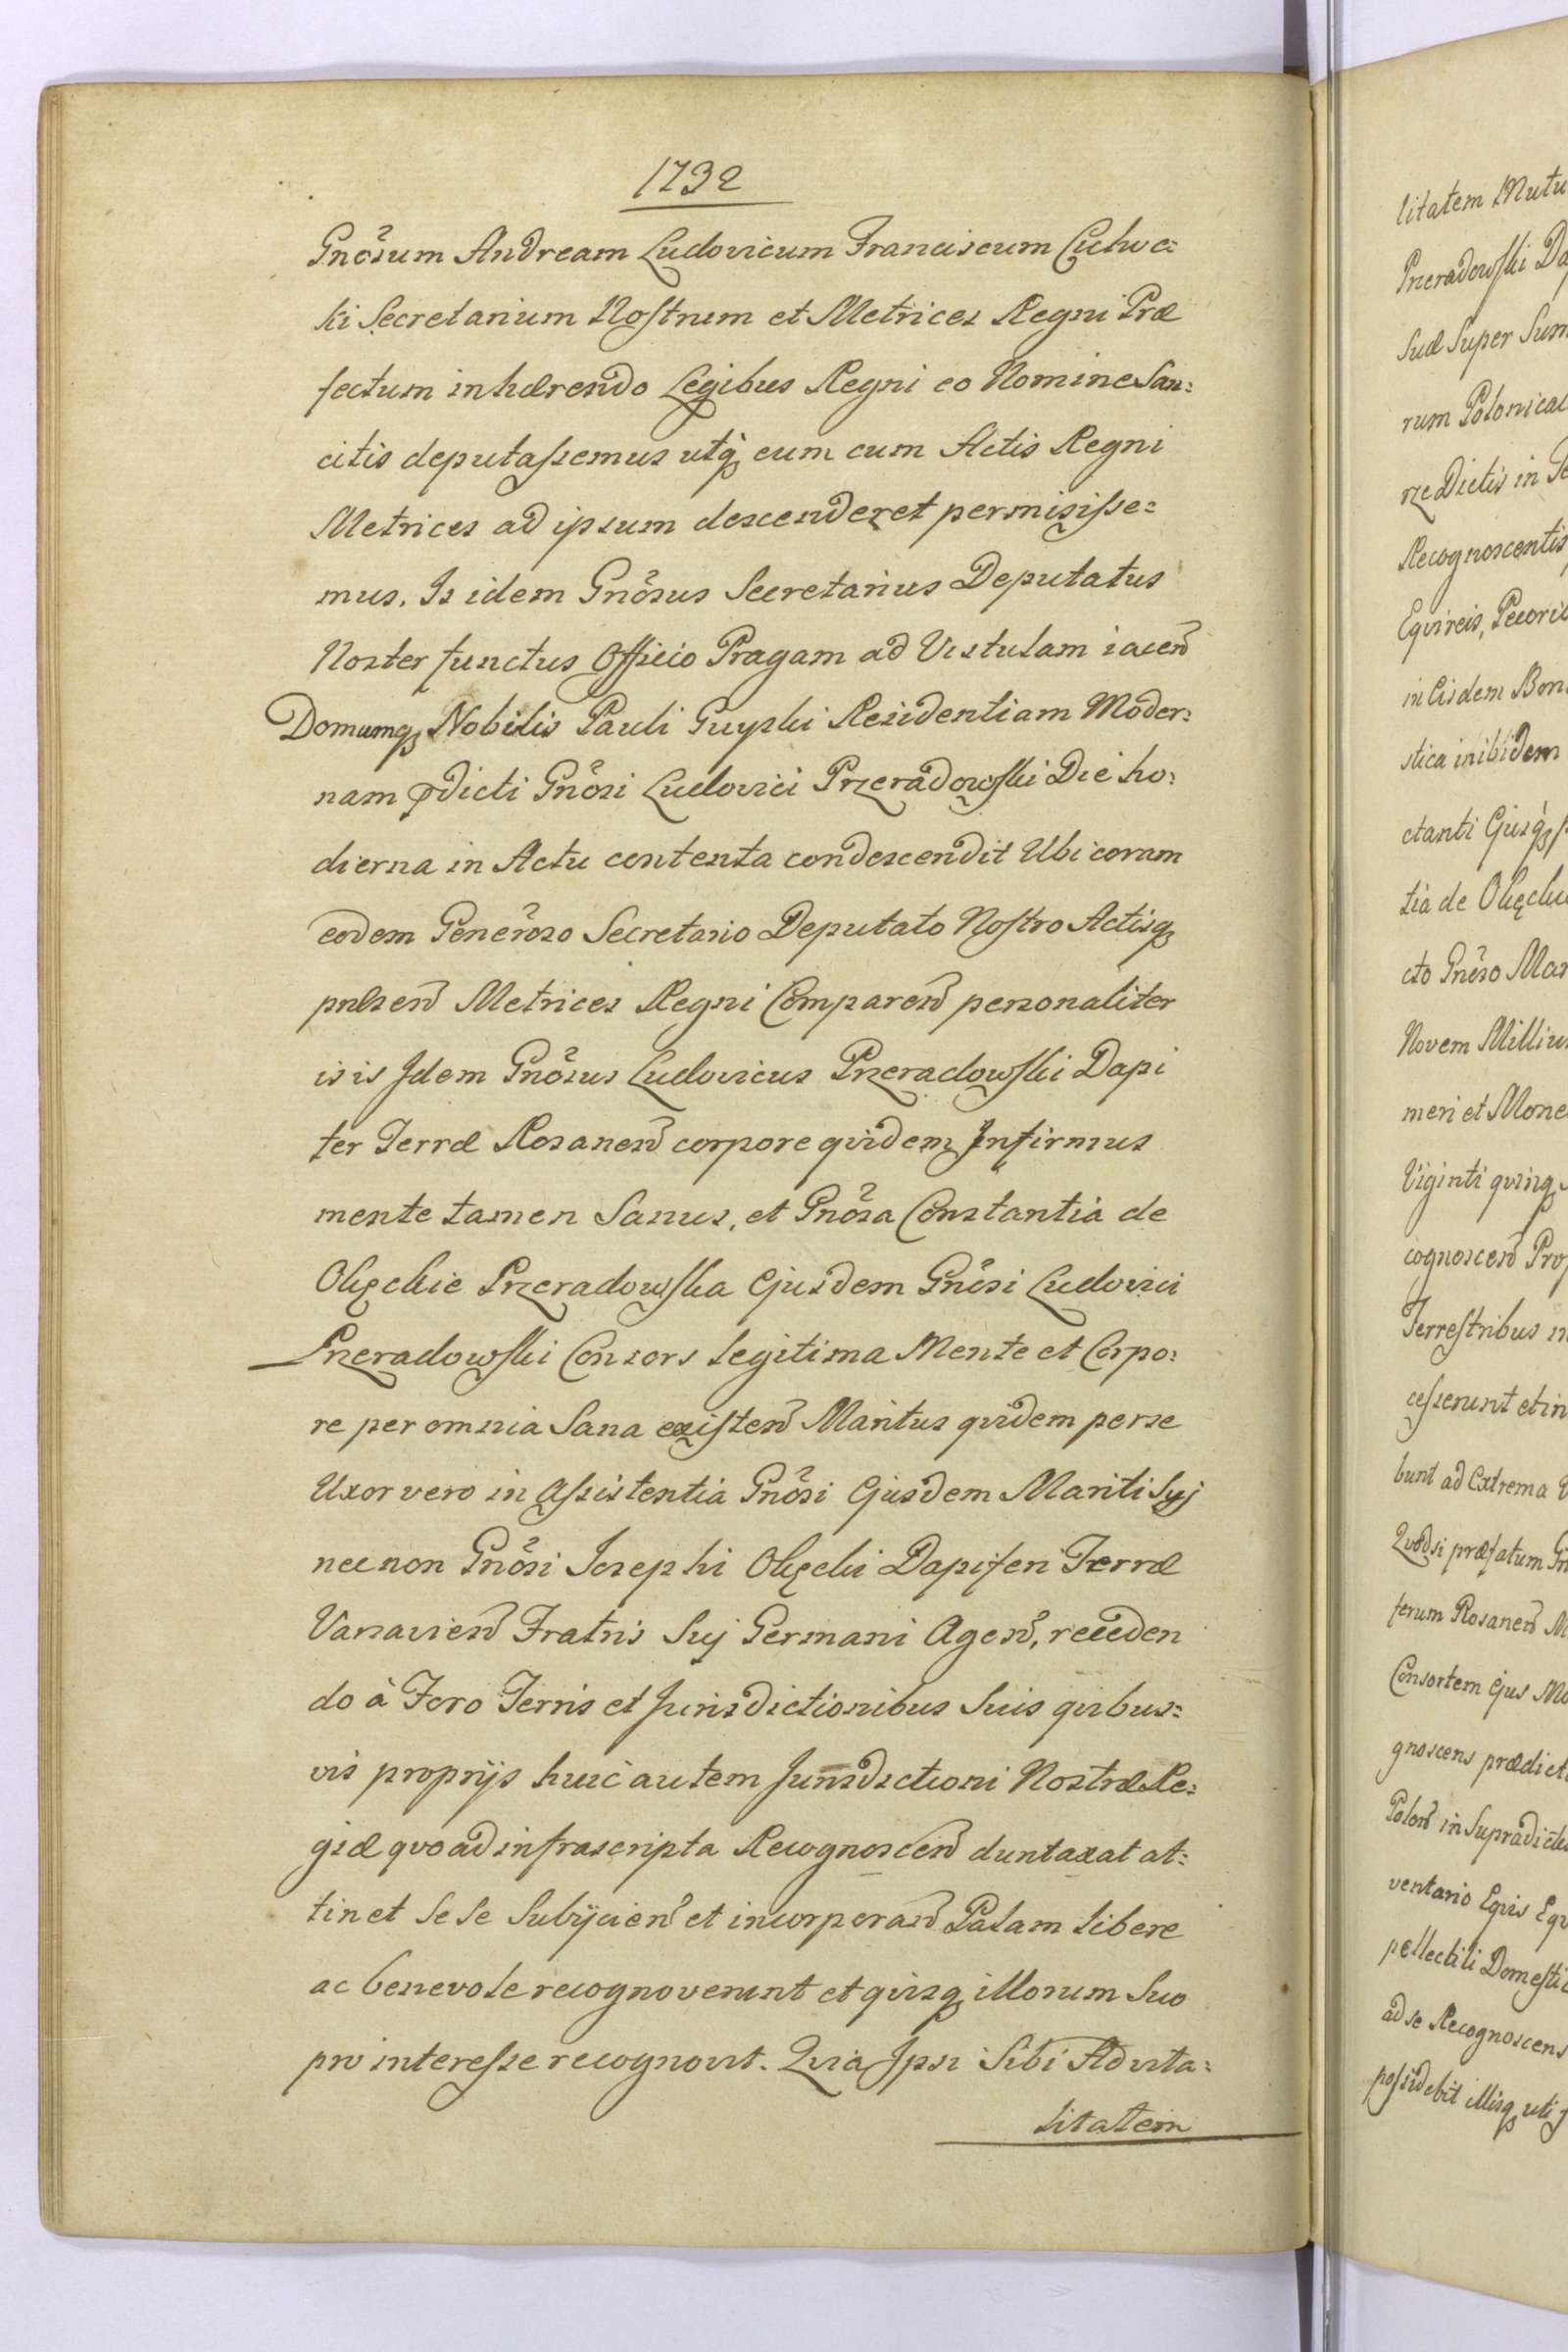 1732
Gnõsum Andream Ludovicum Franciscum Cichoc=
ki Secretarium Nostrum et Metrices Regni Præ
fectum inhærendo Legibus Regni eo Nomine San=
citis deputassemus utq; eum cum Actis Regni
Metrices ad ipsum descenderet permisisse=
mus. Is idem Gnõsus Secretarius Deputatus
Noster functus Officio Pragam ad Vistulam iacen
Domumq; Nobilis Pauli Residentiam Moder=
nam pdicti Gnõsi Ludovici Przeradowski Die ho=
dierna in Actu contenta condescendit Ubi coram
eodem Generoso Secretario Deputato Nostro Actisq;
pnlsen Metrices Regni Comparen personaliter
is is Idem Gnõsus Ludovicus Przeradowski Dapi
fer Terræ Rosanen corpore quidem Infirmus
mente tamen Sanus, et Gnõsa Constantia de
Okęckie Przeradowska Ejusdem Gnõsi Ludovici
Przeradowski Consors legitima Mente et Corpo=
re per omnia Sana existen Maritus quidem per se
Uxor vero in Assistentia Gnõsi Ejusdem Mariti Suj
nec non Gnõsi Josephi Okęcki Dapiferi Terræ
Varsavien Fratris Suj Germani Agen, receden
do à Foro Terris et Jurisdictionibus Suis quibus=
vis proprijs huic autem Jurisdictioni Nostræ Re=
giæ quo ad infrascripta Recognoscen duntaxat at=
tinet Se Se Subijcien et incorporan Palam libere
ac benevole recognoverunt et quisq; illorum Suo
pro interesse recognovit. Quia Ipsi Sibi Advita=
litatem
litatem Mutu
Przeradowski Da
Suæ Super Sum
rum Polonical
rze Dictis in
Recognoscentis
Equireis, Pecori
in Eisdem Bon
stica inibidem
ctanti Ejusq;
tia de Okęckie
cto Gnõso Mar
Novem Milliu
meri et Mone
Viginti quinq;
cognoscen Pro
Terrestribus
cesserunt et in
bunt ad Extrema
Quod si præfatum Gn
ferum Rosanen M
Consortem Ejus Mo
gnoscens prædict
Polon in Supradict
ventario Equis Equ
pellectili Domesti
ad se Recognoscens
possidebit illisq; uti